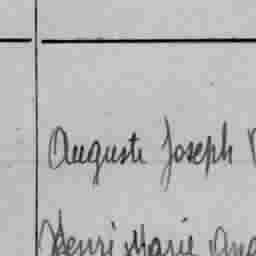 Auguste Joseph
Henri Marie